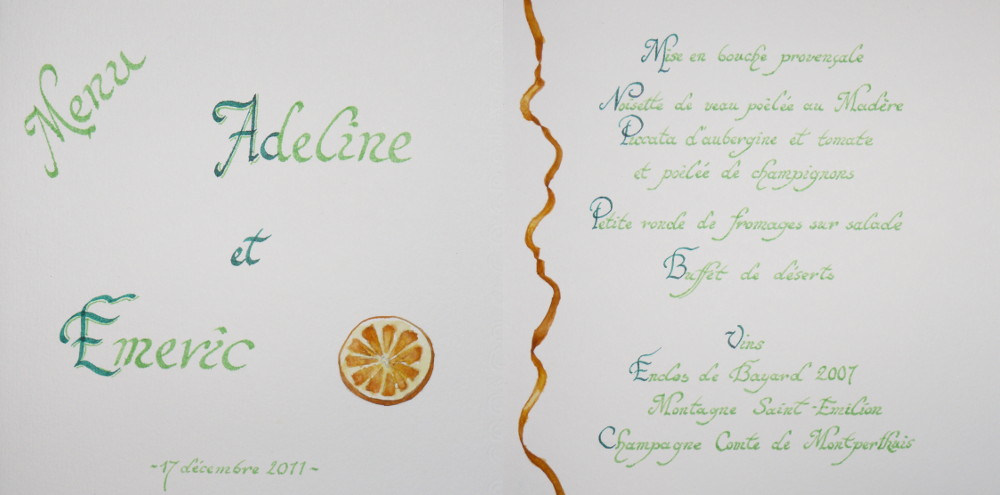 Menu
Adeline
et
Emeric
~17 décembre 2011~
Mise en bouche provençale
Noisette de veau poêlée au Madère
Piccata d'aubergine et tomate
et poêlée de champignons
Petite ronde de fromages sur salade
Buffet de déserts
Vins
Enclos de Bayard 2007
Montagne Saint-Emilion
Champagne Comte de Montperthuis